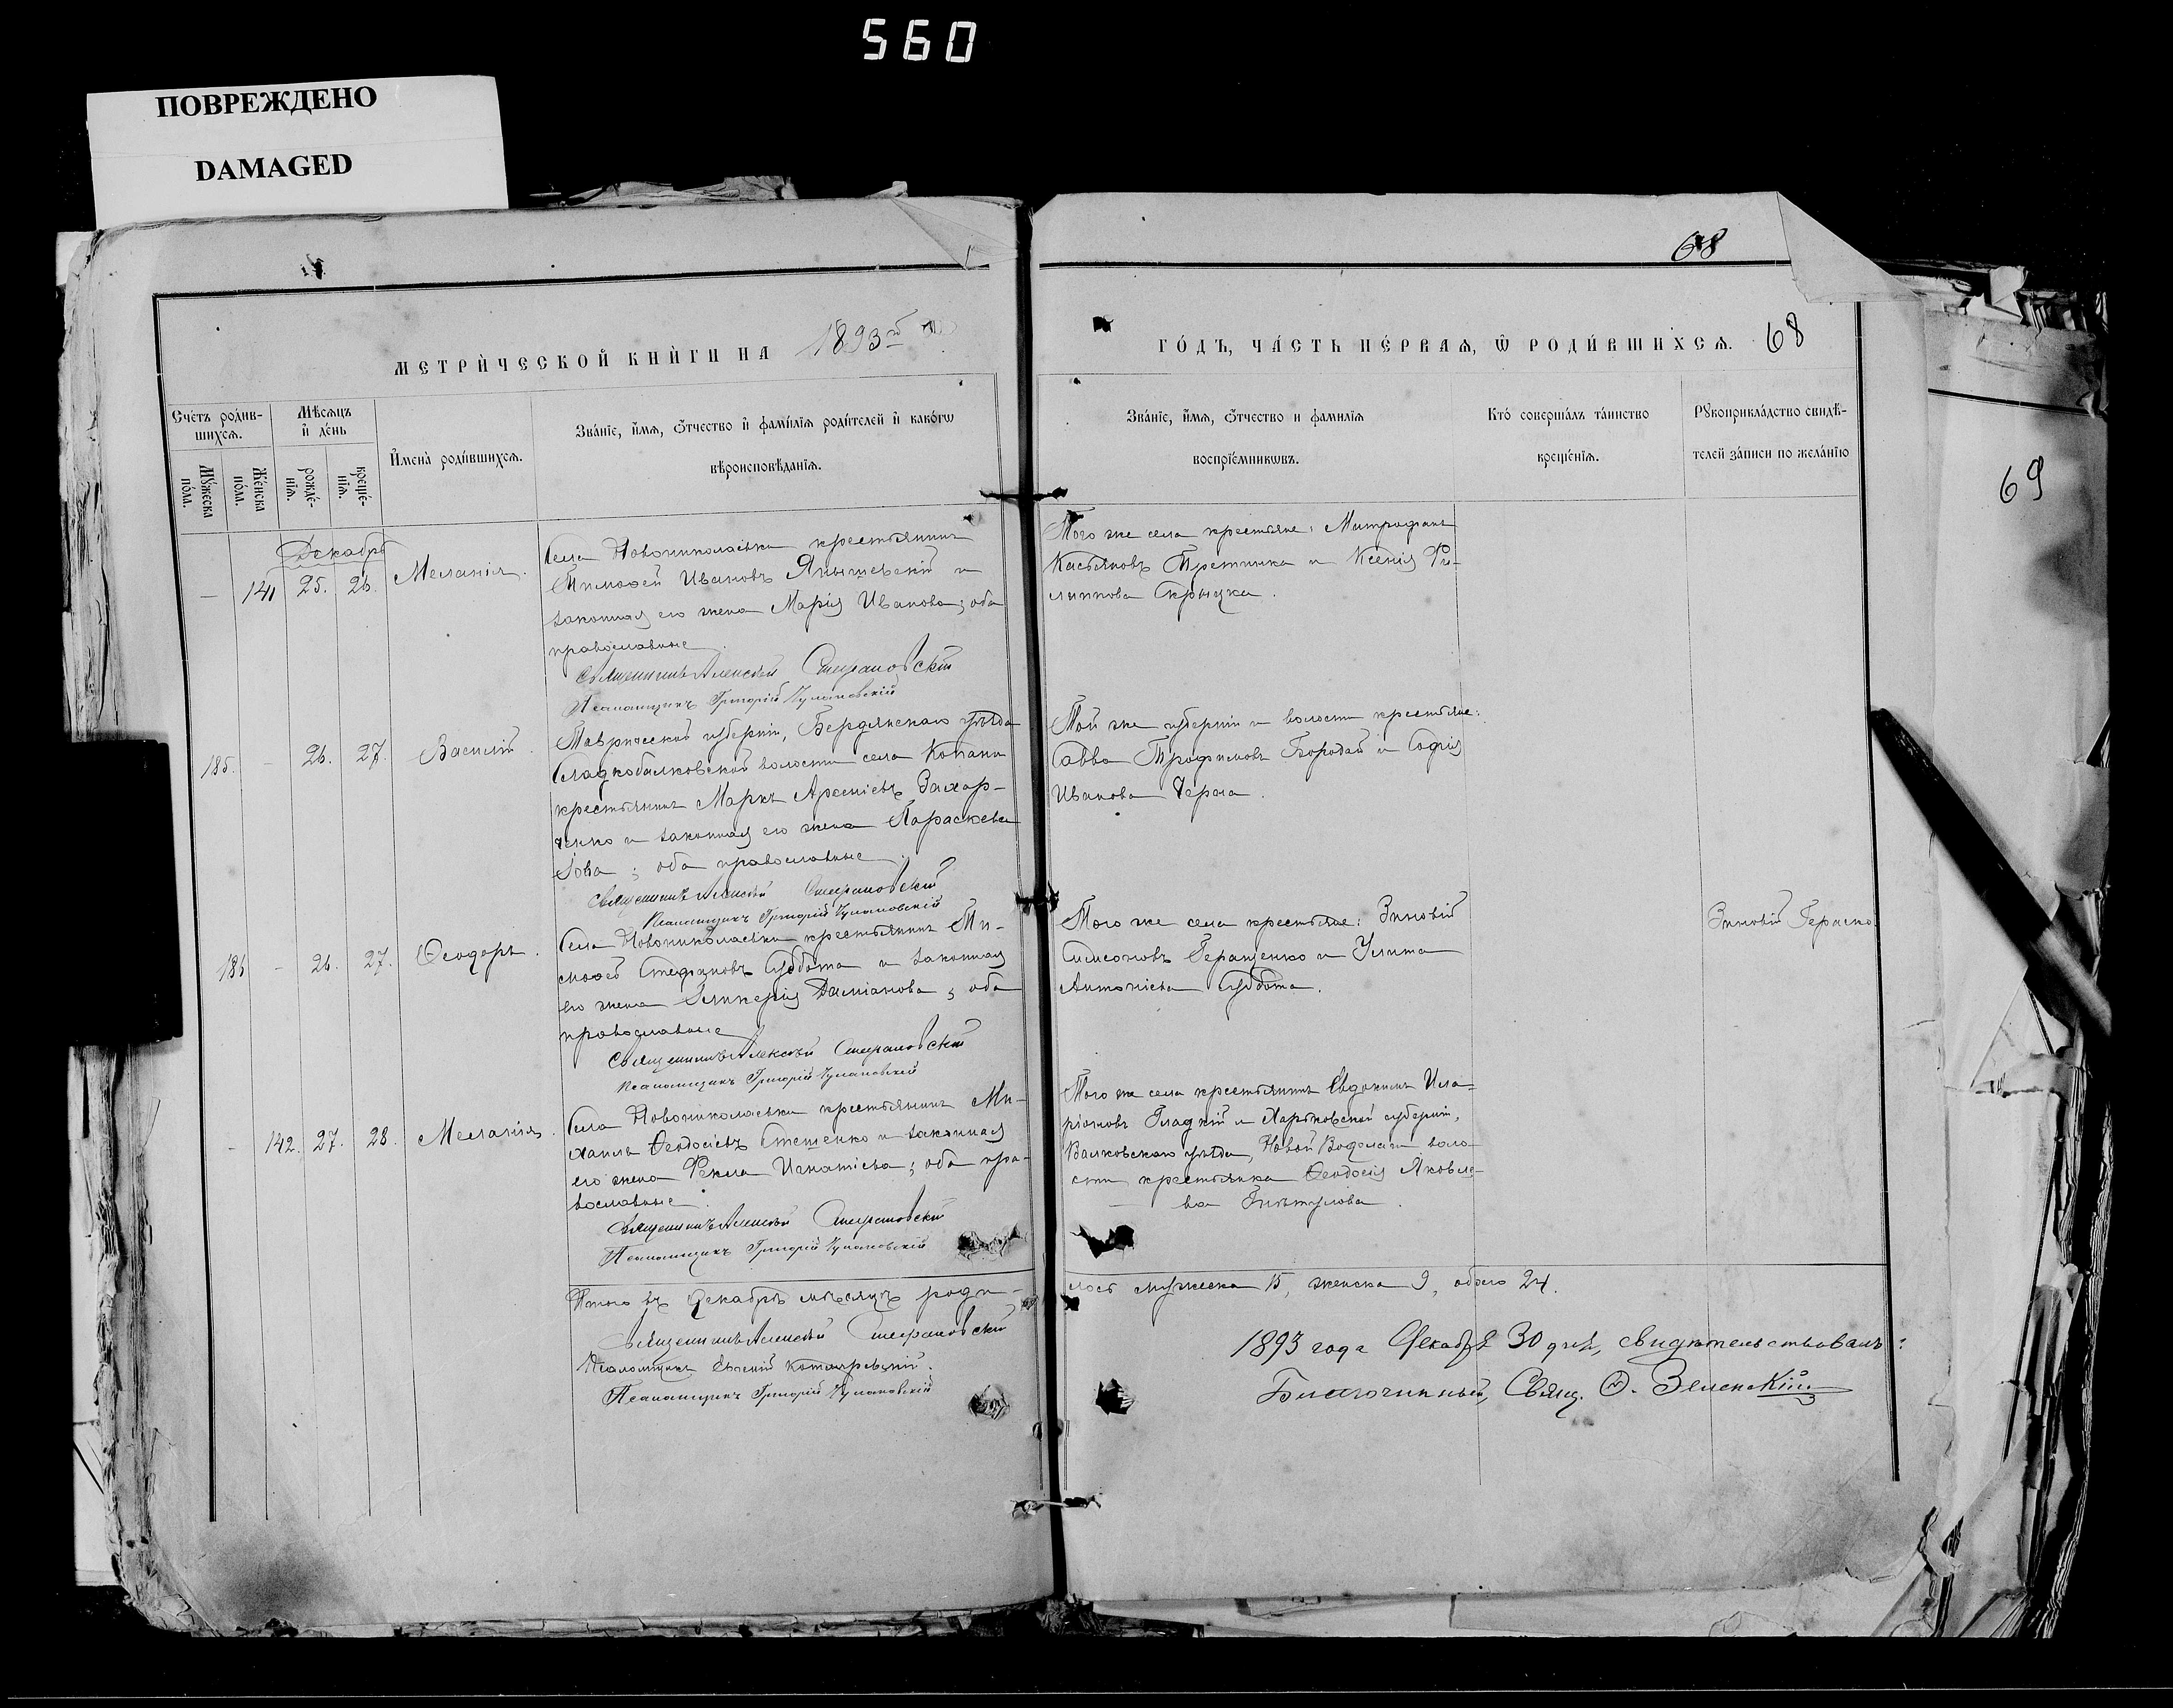 560
ПОВРЕЖДЕНО
DAMAGED
68
МЕТРИ́ЧЕСКОЙ КНИ́ГИ НА 1893й
ГО́ДЪ, ЧА́СТЬ ПЕ́РВАЯ, Ѿ РОДИ́ВШИХСЯ. 68
69
Счетъ родив-
шихся.
Мꙋжеска
пола.
Женска
пола.
Мѣсяцъ
и день
рожде-
нія.
креще-
нія.
Имена родившихся.
Званіе, имя, отчество и фамилія родителей и какогѡ
вѣроисповѣданія.
Званіе, имя, отчество и фамилія
воспріемникѡвъ.
Кто совершалъ таинство
крещенія.
Рꙋкоприкладство свидѣ-
телей записи по желанію
Декабрь
— 141 25. 26. Меланія.
Села Новониколаевки крестьянинъ
Тимоѳей Ивановъ Янышевскій и
законная его жена Марія Иванова; оба
православные.
Священникъ Алексѣй Стефановскій
Псаломщикъ Григорій
Того же села крестьяне: Митрофанъ
Касьяновъ Третинка и Ксенія Фи-
липпова Скрыцка.
185. - 26. 27. Василій.
Таврической губерніи, Бердянскаго уѣзда
Сладкобалковской волости села Копани
крестьянинъ Маркъ Арсеніевъ Захар-
ченко и законная его жена Параскева
Іова; оба православные.
Священникъ Алексѣй Стефановскій
Псаломщикъ Григорій
Той же губерніи и волости крестьяне:
Савва Трофимовъ Бородай и Софія
Иванова Черга.
186 - 26. 27. Ѳеодоръ.
Села Новониколаевки крестьянинъ Ти-
моѳей Стефановъ Суббота и законная
его жена Гликерія Даміанова; оба
православные
Священникъ Алексѣй Стефановскій
Псаломщикъ Григорій
Того же села крестьяне: Зиновій
Симеоновъ Геращенко и Улита
Антоніева Суббота.
Зиновій Гераско.
- 142. 27. 28. Меланія.
Села Новониколаевки крестьянинъ Ми-
хаилъ Ѳеодосіевъ Стешенко и законная
его жена Фекла Игнатіева; оба пра-
вославные.
Священникъ Алексѣй Стефановскій
Псаломщикъ Григорій
Того же села крестьянинъ Евдокимъ Ила-
ріоновъ Гладкій и Харьковской губерніи,
Валковскаго уѣзда, Новой Водолаги воло-
сти крестьянка Ѳеодосія Яковле-
ва
Итого въ Декабрѣ мѣсяцѣ роди-
лось мужеска 15, женска 9, обоего 24.
Священникъ Алексѣй Стефановскій
Псаломщикъ
Псаломщикъ Григорій
1893 года Декабря 30 дня, свидѣтельствовалъ:
Благочинный, Свящ. Ѳ. Зеленскій